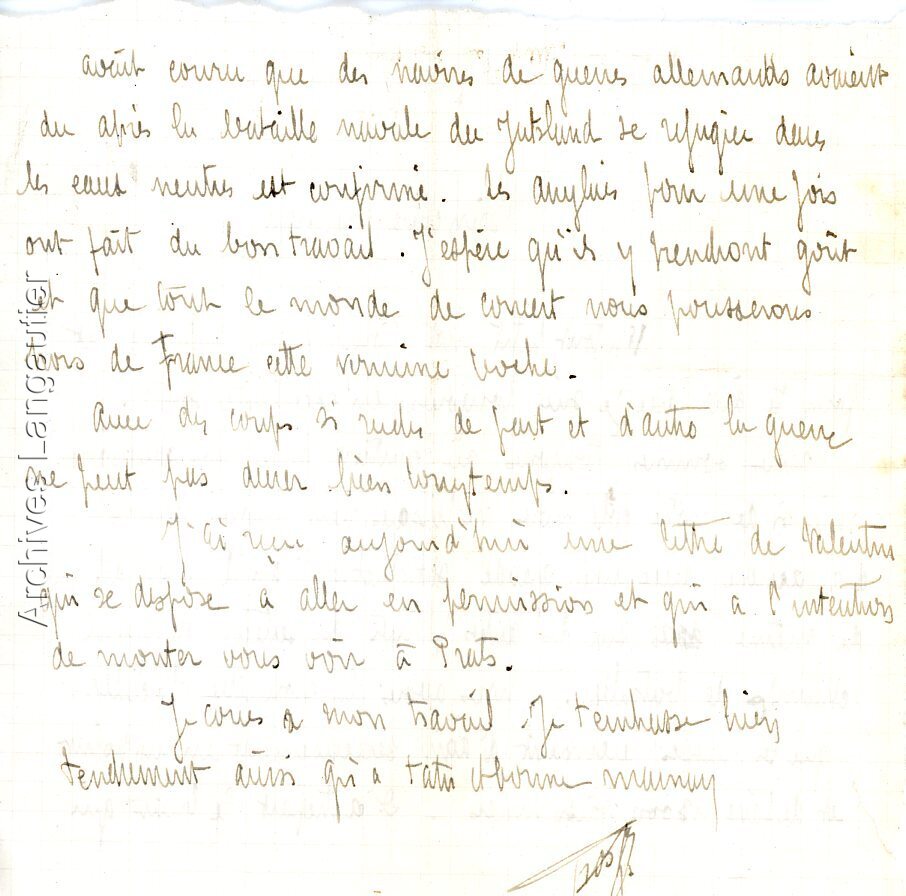 avait couru que des navires de guerres allemands avaient
du après la bataille navale du Jutsland se refugier dans
les eaux neutres est confirmé. Les anglais pour une fois
ont fait du bon travail. J'espère qu'ils y prendront goût
et que tout le monde de concert nous pousserons
hors de France cette vermine boche.
Avec des coups si rudes de part et d'autre la guerre
ne peut pas durer bien longtemps.
J'ai reçu aujourd'hui une lettre de Valentin
qui se dispose à aller en permission et qui a l'intention
de monter vous voir à Prats.
Je cours a mon travail Je t'embrasse bien
tendrement aussi qu'a tata et bonne maman
Archives Langautier